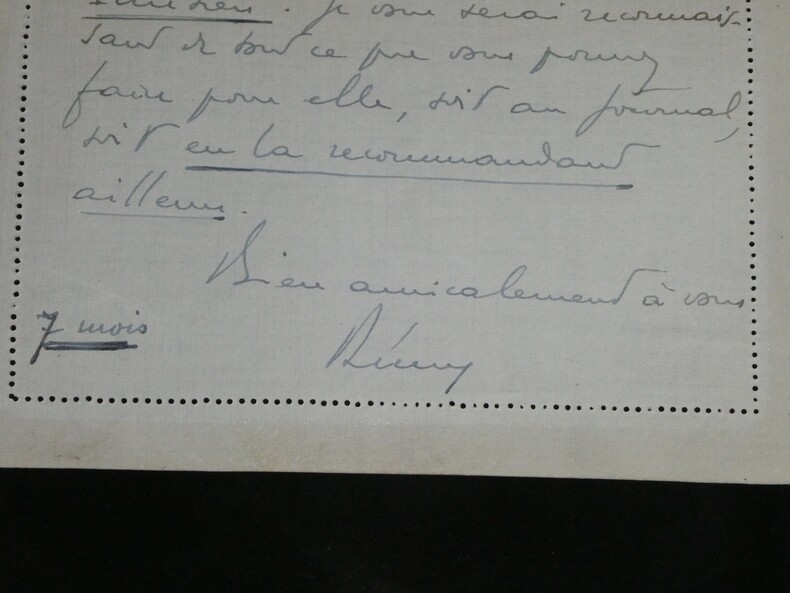 Je vous serai reconnais-
sant de tout ce que vous pourrez
faire pour elle, soit au journal,
soit en la recommandant
ailleurs.
Bien amicalement à vous
Rémy
7 mois